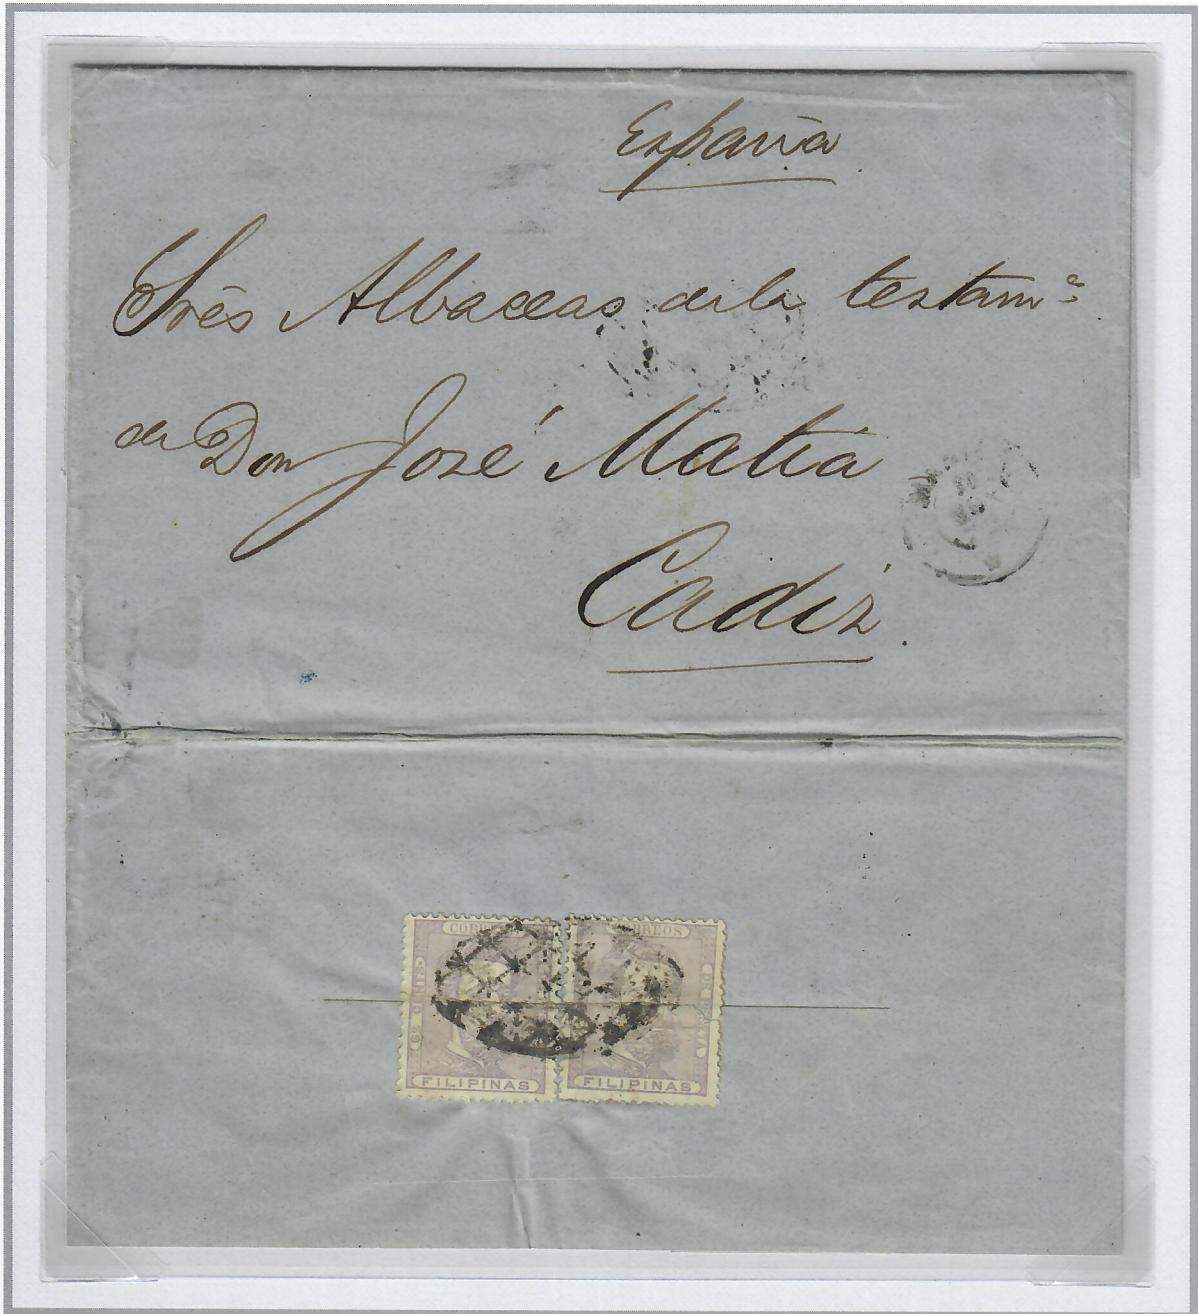 España
Srēs Albaceas de la testamᵃ
de Don José Matía
Cadiz.
CORREOS
FILIPINAS FILIPINAS